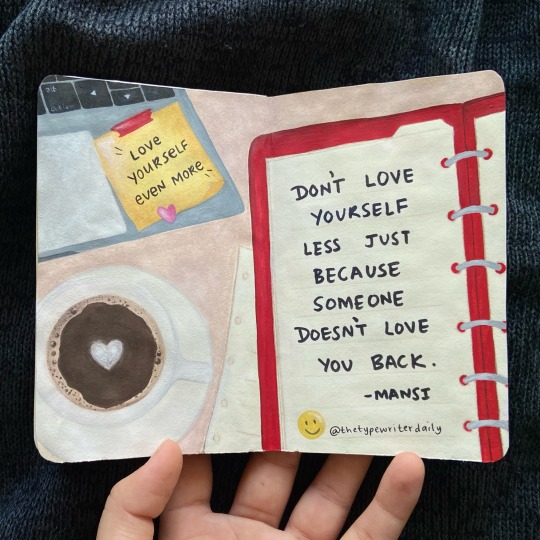 alt
LOVE
YOURSELF
EVEN MORE
DON'T LOVE
YOURSELF
LESS JUST
BECAUSE
SOMEONE
DOESN'T LOVE
YOU BACK.
-MANSI
@thetypewriterdaily